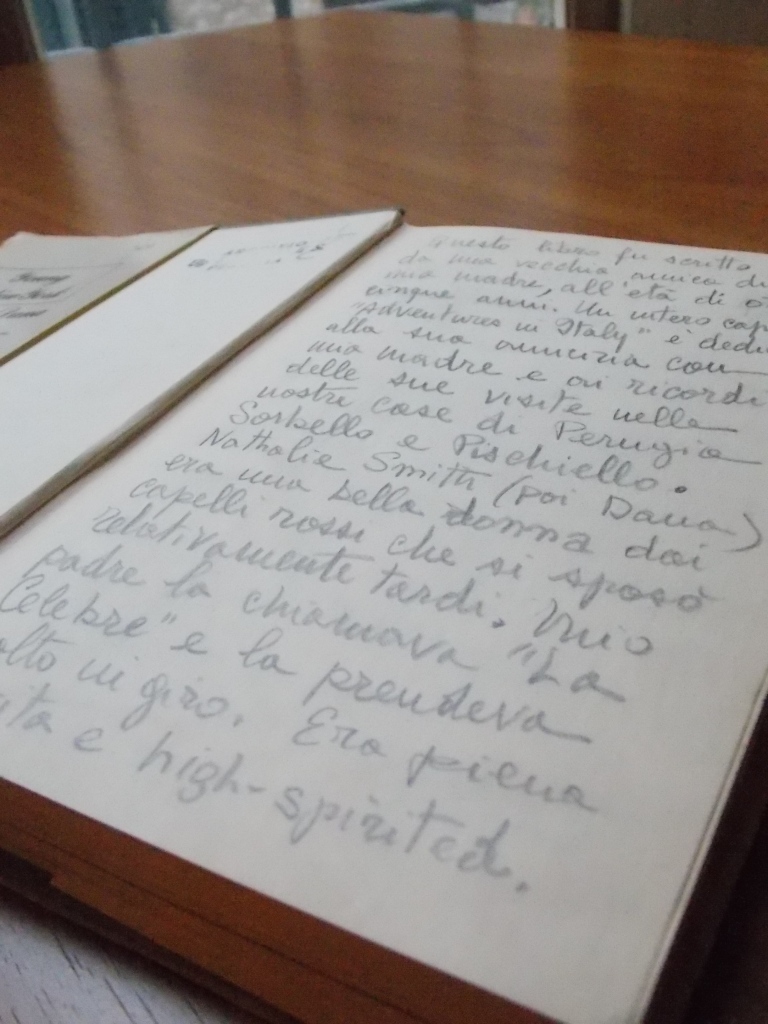 Questo libro fu scritto
da una vecchia amica di
mia madre, all'età di
cinque anni. Un intero cap
"Adventures in Italy" è dedi
alla sua amicizia con
mia madre e ai ricordi
delle sue visite nelle
nostre case di Perugia
Sorbello e Pischiello.
Nathalie Smith (poi Dana)
era una bella donna dai
capelli rossi che si sposò
relativamente tardi. Mio
padre la chiamava "La
Celebre" e la prendeva
olto in giro. Era piena
ita e high-spirited.